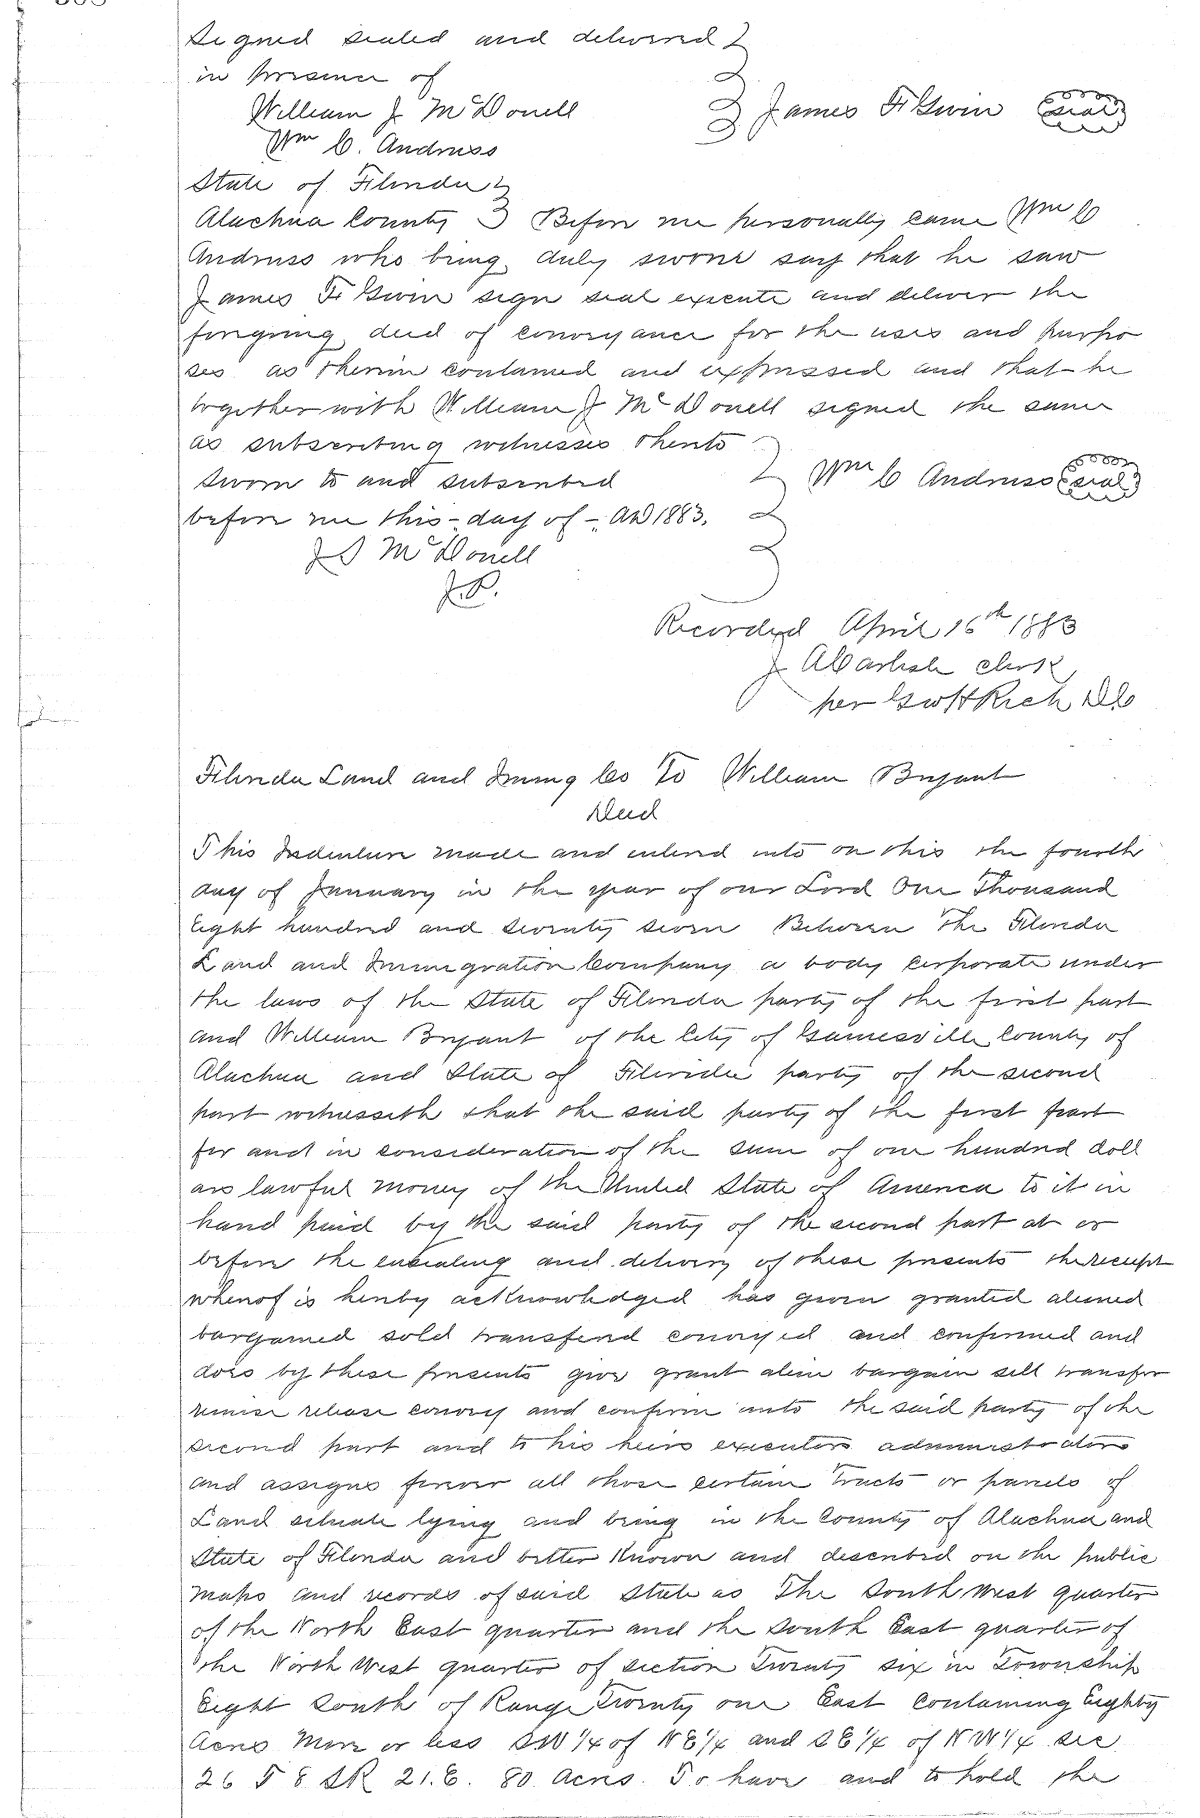 Signed sealed and delivered
in presence of
William J McDonell
James F Gwin seal
Wm C. Andruss
State of Florida
Alachua County Before me personally came Wm C
Andruss who being duly sworn says that he saw
James F Gwin sign seal execute and deliver the
foregoing deed of conveyance for the uses and purpo
ses as therein contained and expressed and that he
together with William J McDonell signed the same
as subscribing witnesses thereto
Sworn to and subscribed
Wm C Andruss seal
before me this - day of -. AD 1883.
McDonell
J.P.
Recorded April 16th 1883
J A Carlisle clerk
per Geo H Rich DC
Florida Land and Immig Co To William Bryant
Deed
This Indenture made and entered into on this the fourth
day of January in the year of our Lord One Thousand
Eight hundred and seventy seven Between The Florida
Land and Immigration Company a body corporate under
the laws of the State of Florida party of the first part
and William Bryant of the City of Gainesville County of
Alachua and State of Florida party of the second
part witnesseth that the said party of the first part
for and in consideration of the sum of one hundred doll
ars lawful money of the United State of America to it in
hand paid by the said party of the second part at or
before the ensealing and delivery of these presents the receipt
whereof is hereby acknowledged has given granted aliened
bargained sold transferred conveyed and confirmed and
does by these presents give grant alien bargain sell transfer
remise release convey and confirm unto the said party of the
second part and to his heirs executors administrators
and assigns forever all those certain Tracts or parcels of
Land situate lying and being in the County of Alachua and
State of Florida and better Known and described on the public
maps and records of said State as The South West quarter
of the North East quarter and the South East quarter of
the North West quarter of section Twenty six in Township
Eight South of Range Twenty one East Containing Eighty
Acres More or less SW 1/4 of NE 1/4 and SE 1/4 of NW 1/4 sec
26 T 8 SR 21.E. 80 Acres. To have and to hold the